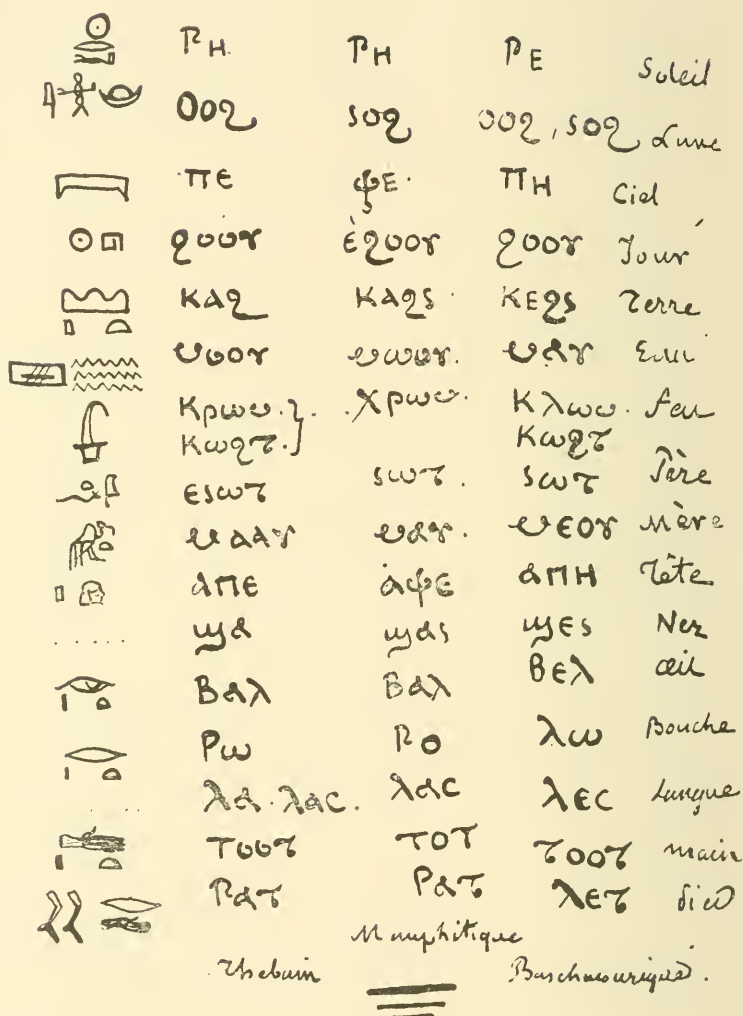 ⲣⲏ. ⲣⲏ ⲣⲉ Soleil
ⲟⲟϩ ⲓⲟϩ ⲟⲟϩ, ⲓⲟϩ Lune
ⲡⲉ ⲫⲉ. ⲡⲏ Ciel
ϩⲟⲟⲩ ⲉ̀ϩⲟⲟⲩ ϩⲟⲟⲩ Jour
ⲕⲁϩ ⲕⲁϩⲓ. ⲕⲉϩⲓ Terre
ⲙⲟⲟⲩ ⲙⲱⲟⲩ. ⲙⲁⲩ Eau
ⲕⲣⲱⲙ. ⲭⲣⲱⲙ. ⲕⲗⲱⲙ. feu
ⲕⲱϩⲧ. ⲕⲱϩⲧ
ⲉⲓⲱⲧ ⲓⲱⲧ. ⲓⲱⲧ Père
ⲙⲁⲁⲩ ⲙⲁⲩ. ⲙⲉⲟⲩ Mère
ⲁⲡⲉ ⲁⲫⲉ ⲁⲡⲏ Tête
ϣⲁ ϣⲁⲓ ϣⲉⲓ Nez
ⲃⲁⲗ ⲃⲁⲗ ⲃⲉⲗ œil
ⲣⲱ ⲣⲟ ⲗⲱ Bouche
ⲗⲁ. ⲗⲁⲥ. ⲗⲁⲥ ⲗⲉⲥ Langue
ⲧⲟⲟⲧ ⲧⲟⲧ ⲧⲟⲟⲧ main
ⲣⲁⲧ ⲣⲁⲧ ⲗⲉⲧ pied
Memphitique
Thebain Baschmourique.